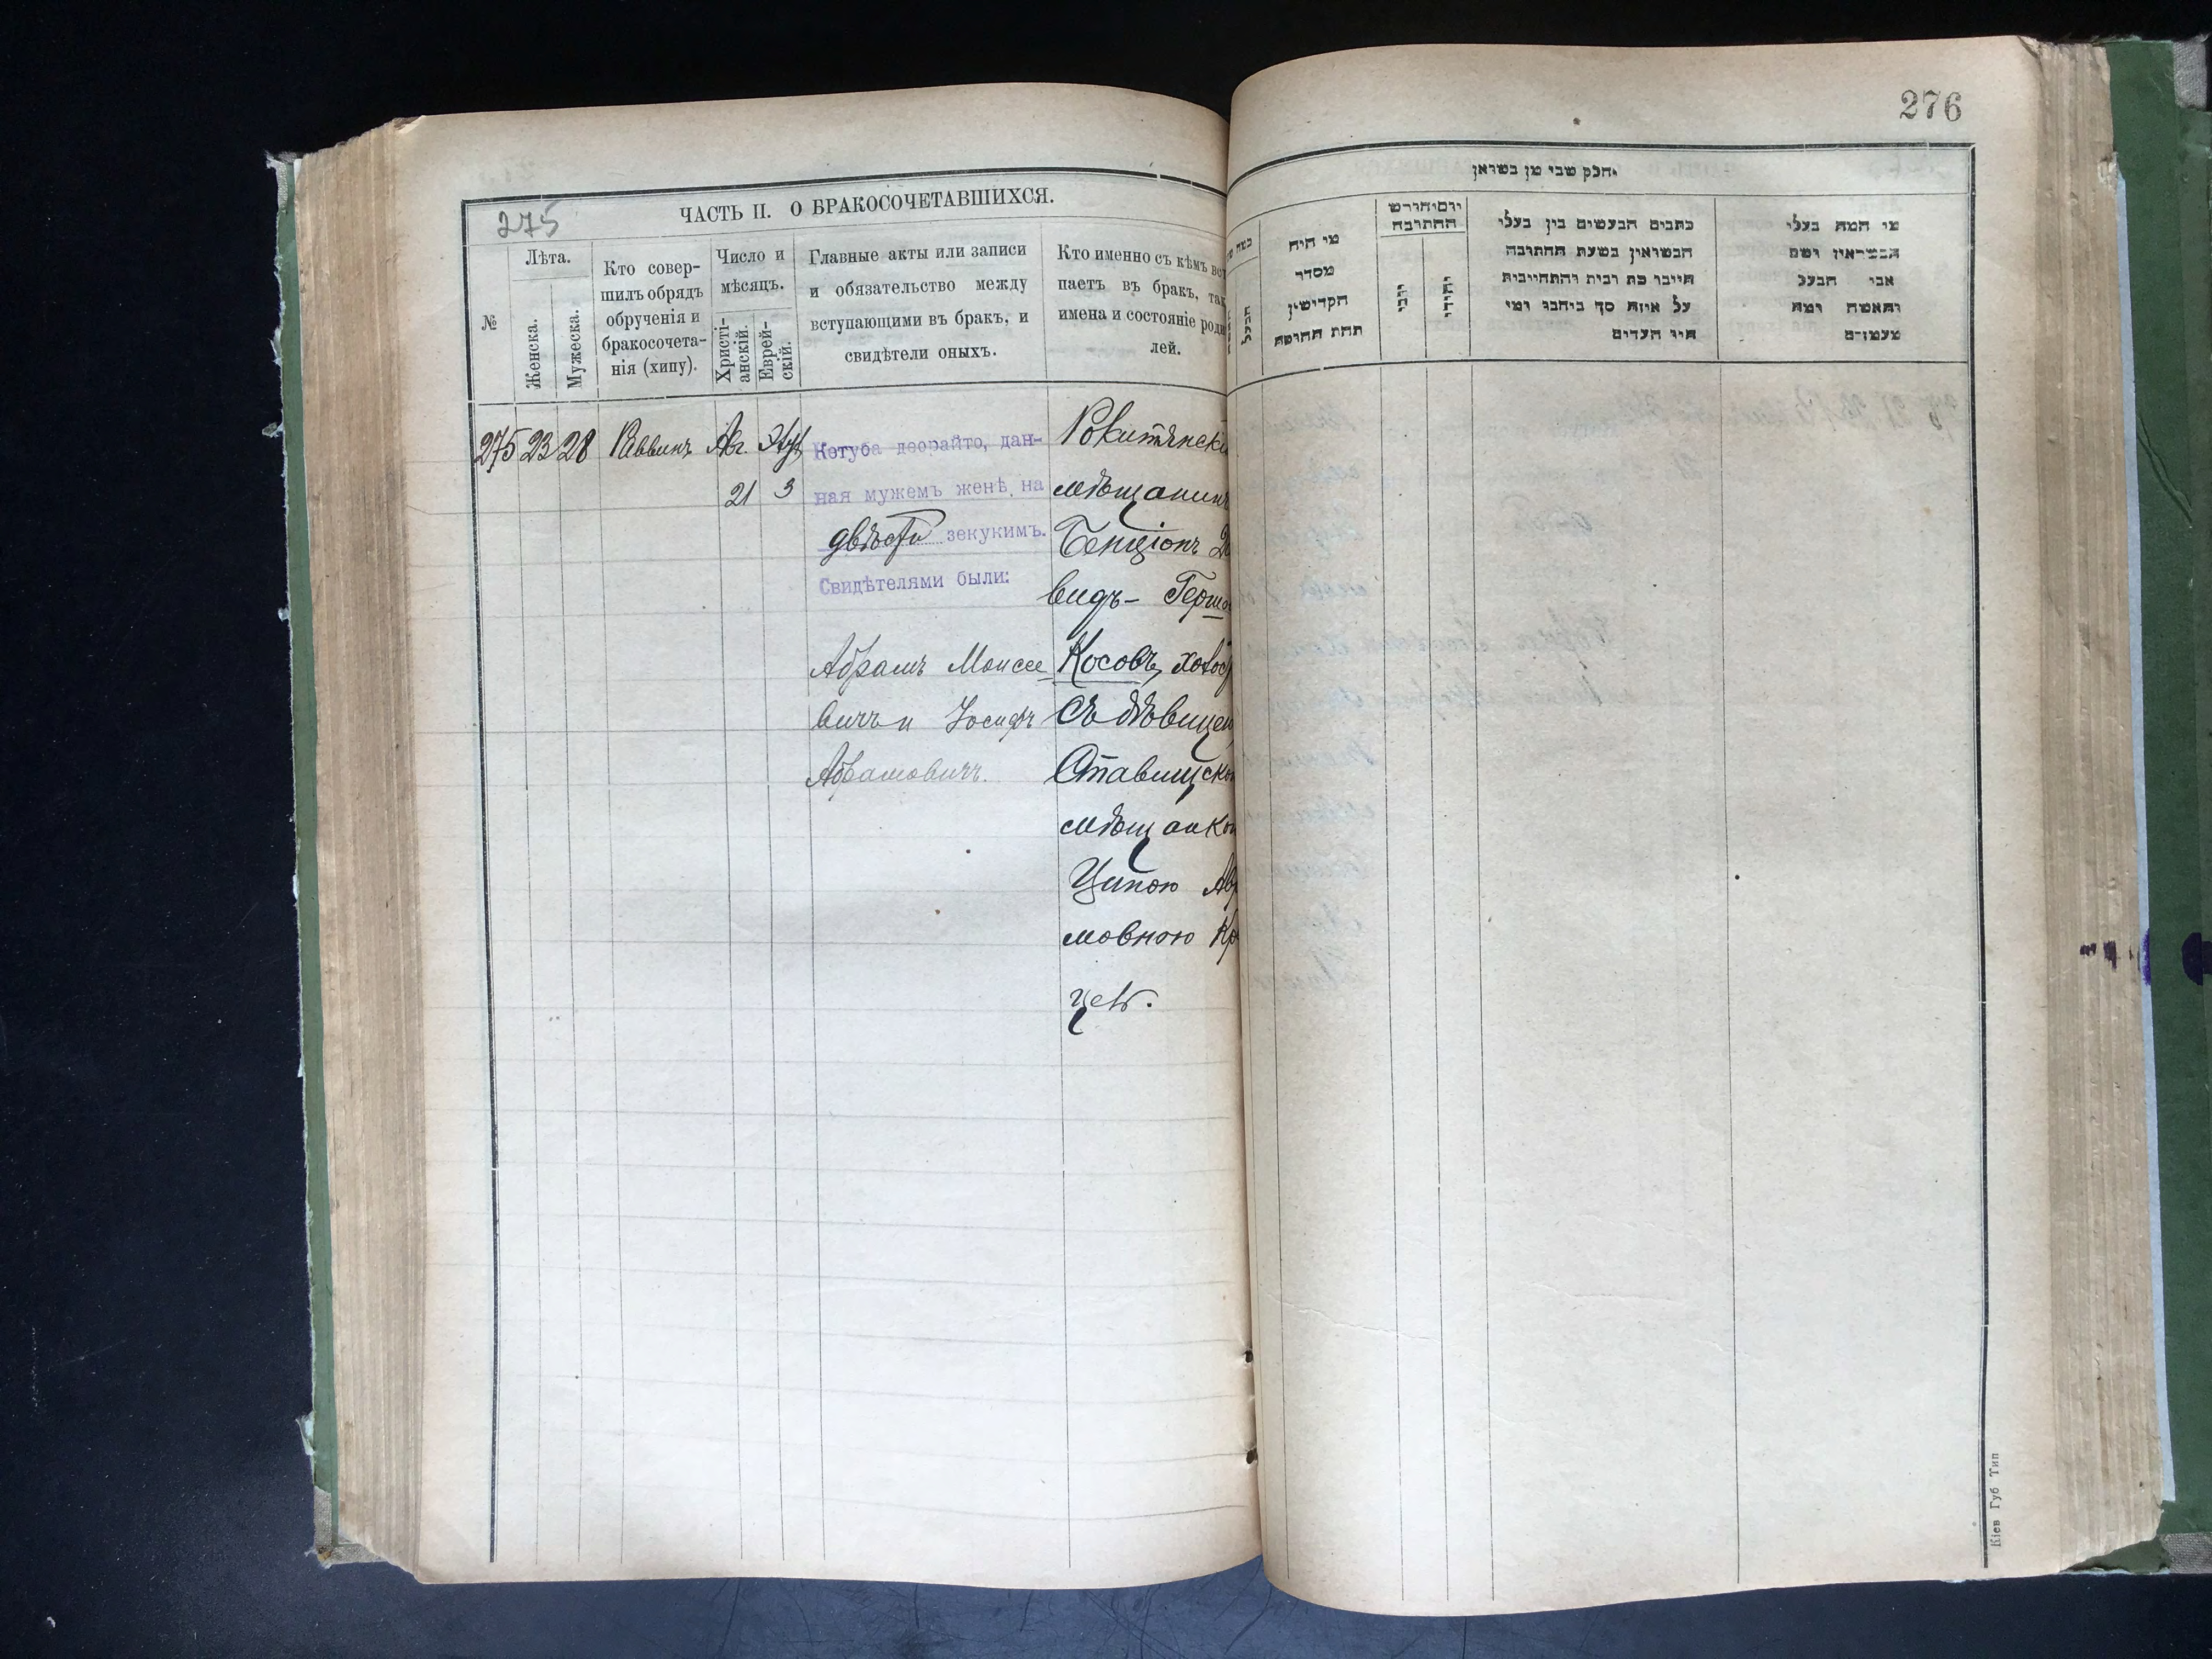 276
275
ЧАСТЬ II. О БРАКОСОЧЕТАВШИХСЯ.
№
Лѣта.
Женска.
Мужеска.
Кто совер-
шилъ обрядъ
обрученія и
бракосочета-
нія (хипу).
Число и
мѣсяцъ.
Христі-
анскій.
Еврей-
скій.
Главные акты или записи
и обязательство между
вступающими въ бракъ, и
свидѣтели оныхъ.
Кто именно съ кѣмъ вст
паетъ въ бракъ, так
имена и состояніе роди
лей.
275 23 28 Раввинъ Авг.
21 3
Кетуба деорайто, дан-
ная мужемъ женѣ на
двѣсти зекукимъ.
Свидѣтелями были:
Абрамъ Моисее
вичъ и Іосифъ
Абрамовичъ.
Рокитянскі
мѣщанинъ
Бенціонъ Да
видъ- Гершо
Косовъ, холост
съ дѣвицею
Ставищско
мѣщанко
Ципою Аб
мовною Кр
церъ.
חלק שני מן נשואין
מי היה
מסדר
הקדושין
תחת החופה
יום וחודש
החתונה
יוני
יהודי
כתבים הנעשים בין בעלי
הנשואין בשעת החתונה
חייבו כת וכית והתחייבות
על איזה סך ביחבו ומי
היו העדים
מי המה בעלי
הנשואין ושם
אבי הבעל
והאשה ומה
מעמדם
Кіев Губ Тип